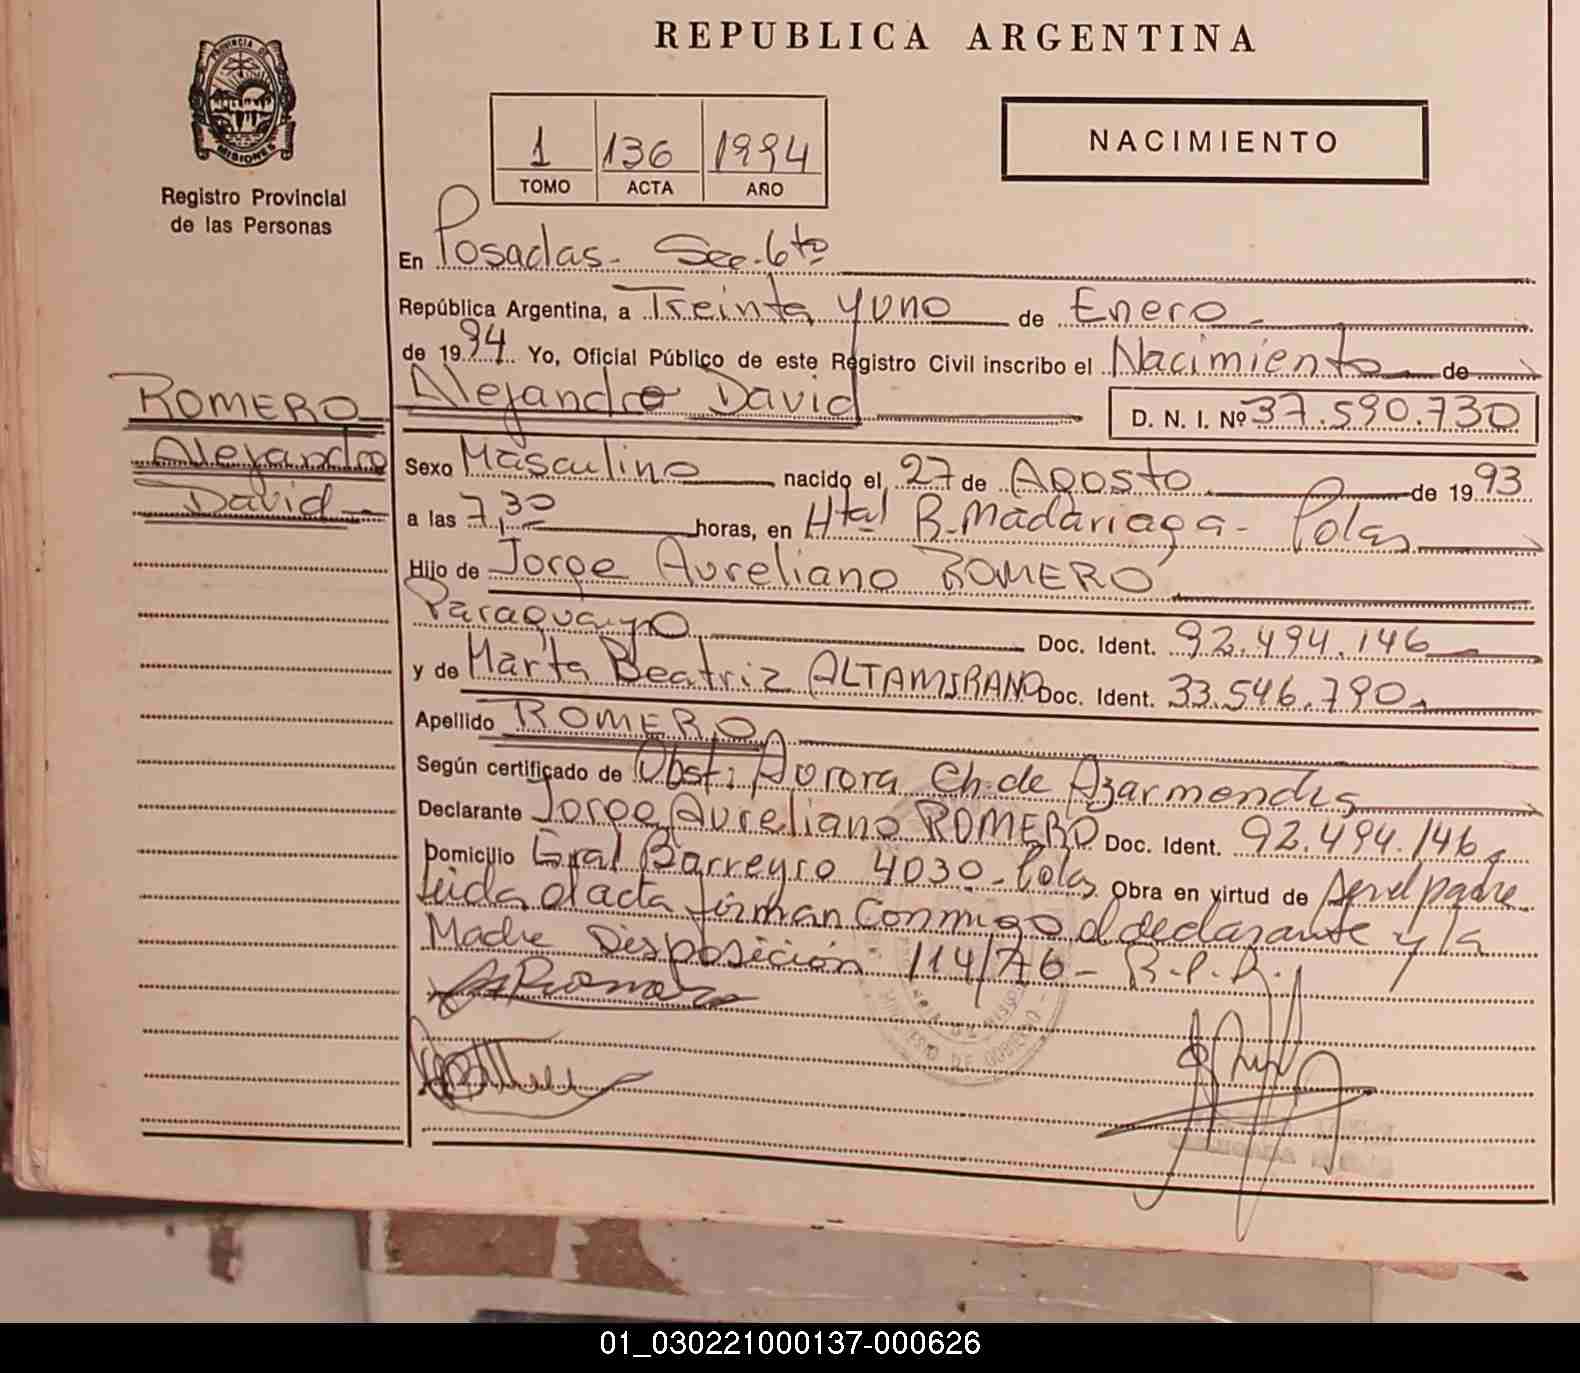 REPUBLICA ARGENTINA
PROVINCIA DE
MISIONES
Registro Provincial
de las Personas
1 136 1994
TOMO ACTA AÑO
NACIMIENTO
En Posadas - Sec. 6to
República Argentina, a Treinta y uno de Enero -
de 1994. Yo, Oficial Público de este Registro Civil inscribo el Nacimiento de
Alejandro David D. N. I. Nº 37.590.730
ROMERO
Alejandro
David
Sexo Masculino nacido el 27 de Agosto de 1993
a las 7,30 horas, en Htal R. Madariaga - Pdas
Hijo de Jorge Aureliano ROMERO
Paraguayo Doc. Ident. 92.494.146
y de Marta Beatriz ALTAMIRANO Doc. Ident. 33.546.790
Apellido ROMERO
Según certificado de Obst: Aurora Ch. de Azarmendis
Declarante Jorge Aureliano ROMERO Doc. Ident. 92.494.146
Domicilio Gral Barreyro 4030 - Pdas Obra en virtud de ser el padre
leida el acta firman conmigo el declarante y la
Madre Disposición 114/76 - R.P.P.
MINISTERIO DE GOBIERNO
01_030221000137-000626